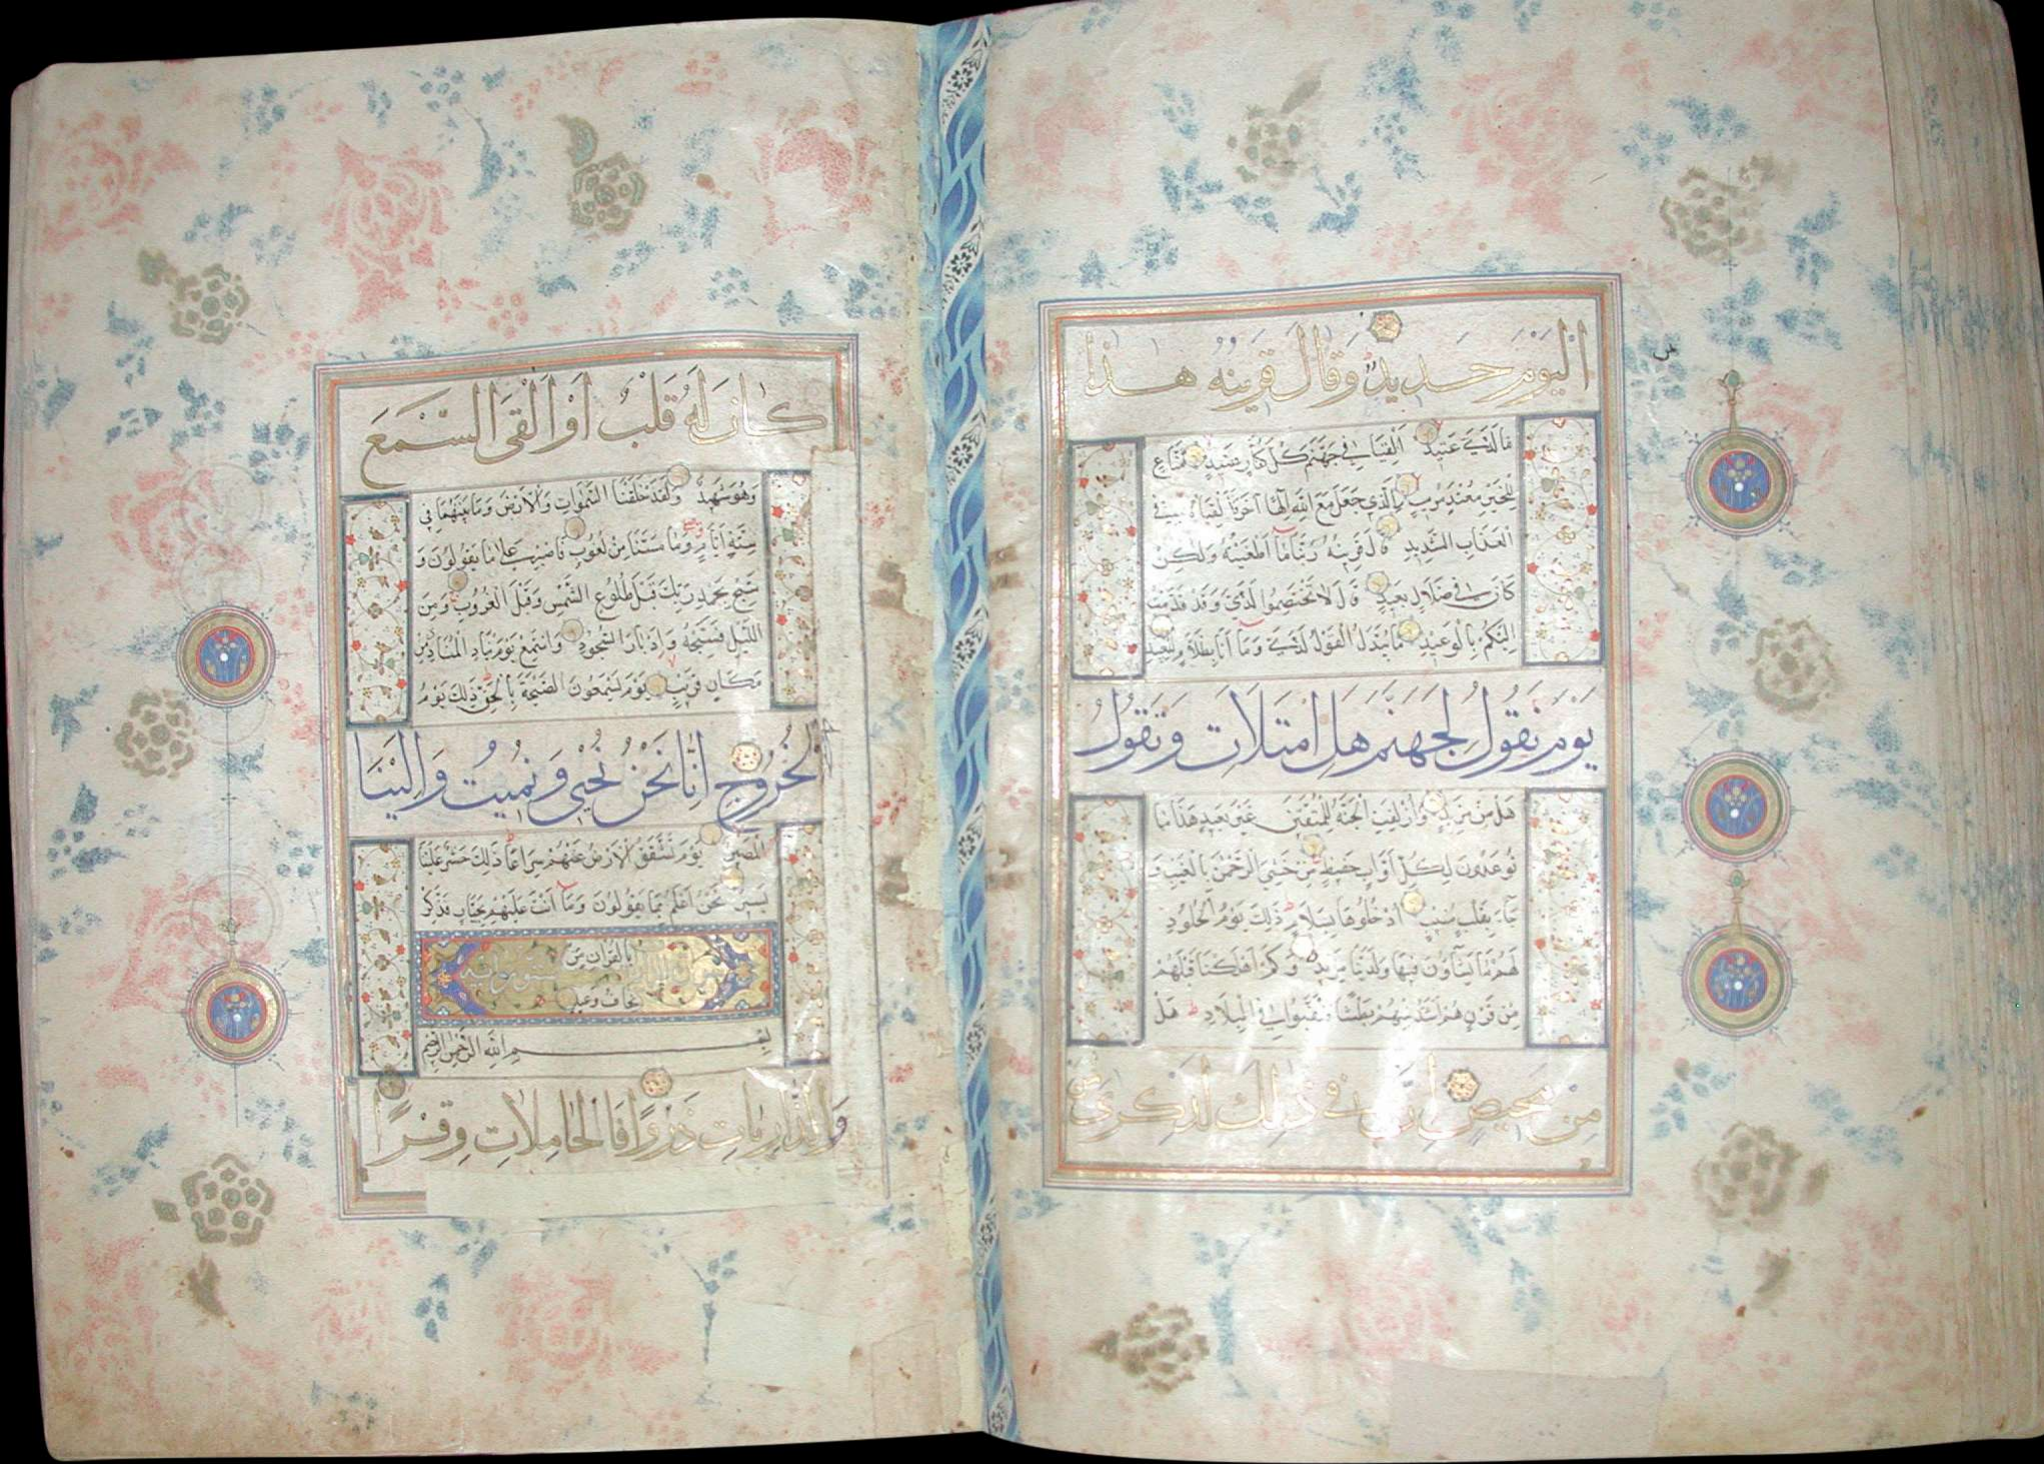 اليوم حديد وقال قرينه هذا
ما لدي عتيد القيا في جهنم كل كفار عنيد مناع
للخير معتد مريب الذي جعل مع الله الها اخر فالقياه في
العذاب الشديد قال قرينه ربنا ما اطغيته ولكن
كان في ضلال بعيد قال لا تختصموا لدي وقد قدمت
اليكم بالوعيد ما يبدل القول لدي وما انا بظلام للعبيد
يوم نقول لجهنم هل امتلات وتقول
هل من مزيد وازلفت الجنة للمتقين غير بعيد هذا ما
توعدون لكل اواب حفيظ من خشي الرحمن بالغيب و
جاء بقلب منيب ادخلوها بسلام ذلك يوم الخلود
لهم ما يشاؤن فيها ولدينا مزيد وكم اهلكنا قبلهم
من قرن هم اشد منهم بطشا فنقبوا في البلاد هل
من محيص ان في ذلك لذكرى
كان له قلب او القى السمع
وهو شهيد ولقد خلقنا السموات والارض وما بينهما في
ستة ايام وما مسنا من لغوب فاصبر على ما يقولون و
سبح بحمد ربك قبل طلوع الشمس وقبل الغروب ومن
الليل فسبحه وادبار السجود واستمع يوم يناد المناد من
مكان قريب يوم يسمعون الصيحة بالحق ذلك يوم
الخروج انا نحن نحيي ونميت والينا
المصير يوم تشقق الارض عنهم سراعا ذلك حشر علينا
يسير نحن اعلم بما يقولون وما انت عليهم بجبار فذكر
بالقران من
يخاف وعيد
بسم الله الرحمن الرحيم
والذاريات ذروا فالحاملات وقرا